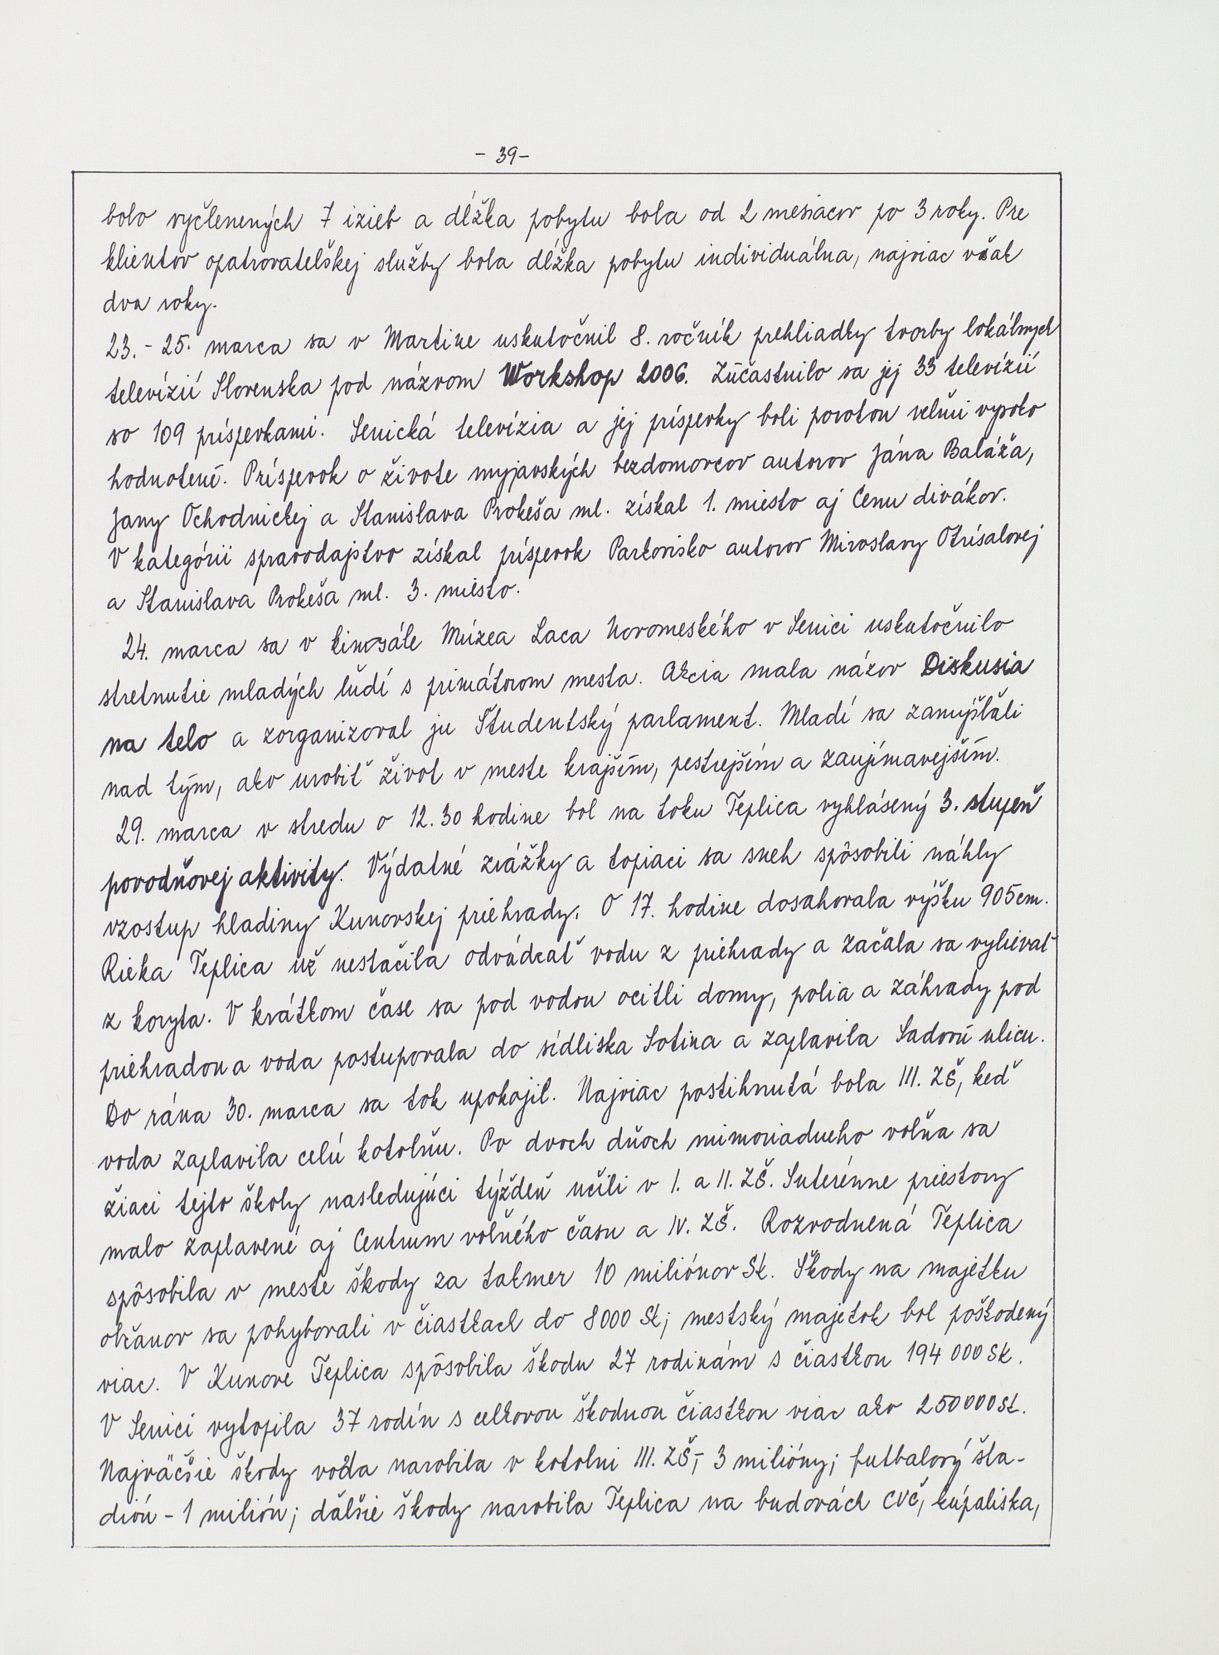 - 39 -
bolo vyčlenených 7 izieb a dĺžka pobytu bola od 2 mesiacov po 3 roky. Pre
klientov opatrovateľskej služby bola dĺžka pobytu individuálna, najviac však
dva roky.
23. - 25. marca sa v Martine uskutočnil 8. ročník prehliadky tvorby lokálnych
televízií Slovenska pod názvom Workshop 2006. Zúčastnilo sa jej 33 televízií
so 109 príspevkami. Senická televízia a jej príspevky boli porotou veľmi vysoko
hodnotené. Príspevok o živote myjavských bezdomovcov autorov Jána Baláža,
Jany Ochodnickej a Stanislava Prokeša ml. získal 1. miesto aj Cenu divákov.
V kategórii spravodajstvo získal príspevok Parkovisko autorov Miroslavy Otrísalovej
a Stanislava Prokeša ml. 3. miesto.
24. marca sa v kinosále Múzea Laca Novomeského v Senici uskutočnilo
stretnutie mladých ľudí s primátorom mesta. Akcia mala názov Diskusia
na telo a zorganizoval ju Študentský parlament. Mladí sa zamýšľali
nad tým, ako urobiť život v meste krajším, pestrejším a zaujímavejším.
29. marca v stredu o 12.30 hodine bol na toku Teplica vyhlásený 3. stupeň
povodňovej aktivity. Výdatné zrážky a topiaci sa sneh spôsobili náhly
vzostup hladiny Kunovskej priehrady. O 17. hodine dosahovala výšku 905cm.
Rieka Teplica už nestačila odvádzať vodu z priehrady a začala sa vylievať
z koryta. V krátkom čase sa pod vodou ocitli domy, polia a záhrady pod
priehradou a voda postupovala do sídliska Sotina a zaplavila Sadovú ulicu.
Do rána 30. marca sa tok upokojil. Najviac postihnutá bola III. ZŠ, keď
voda zaplavila celú kotolňu. Po dvoch dňoch mimoriadneho voľna sa
žiaci tejto školy nasledujúci týždeň učili v I. a II. ZŠ. Suterénne priestory
malo zaplavené aj Centrum voľného času a IV. ZŠ. Rozvodnená Teplica
spôsobila v meste škody za takmer 10 miliónov Sk. Škody na majetku
občanov sa pohybovali v čiastkach do 8000 Sk; mestský majetok bol poškodený
viac. V Kunove Teplica spôsobila škodu 27 rodinám s čiastkou 194 000 Sk.
V Senici vytopila 37 rodín s celkovou škodnou čiastkou viac ako 250000Sk.
Najväčšie škody voda narobila v kotolni III. ZŠ,- 3 milióny; futbalový šta-
dión - 1 milión; ďalšie škody narobila Teplica na budovách CVČ, kúpaliska,